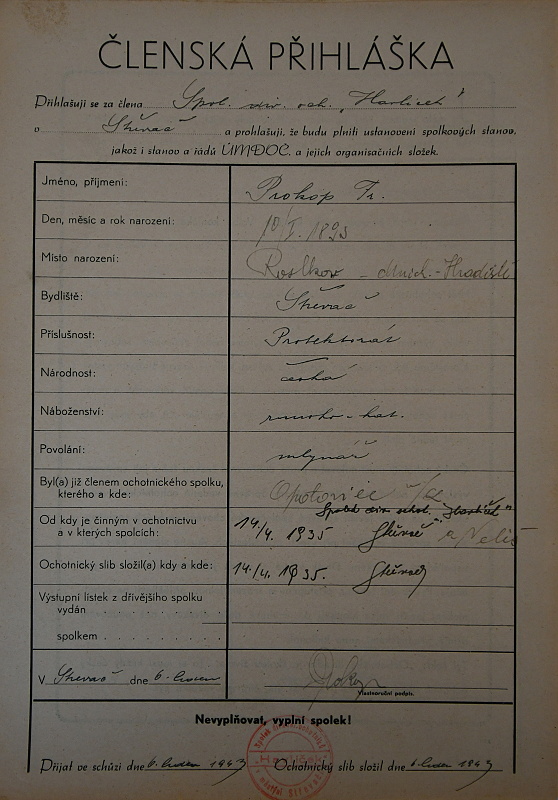 ČLENSKÁ PŘIHLÁŠKA
Přihlašuji se za člena Spol. div. och. „Havlíček"
v Střevač a prohlašuji, že budu plniti ustanovení spolkových stanov,
jakož i stanov a řádů ÚMDOC. a jejich organisačních složek.
Jméno, příjmení: Prokop Fr.
Den, měsíc a rok narození: 10/I. 1893
Místo narození: - Mnich.-Hradiště
Bydliště: Střevač
Příslušnost: Protektorát
Národnost: česká
Náboženství: římsko-kat.
Povolání: mlynář
Byl(a) již členem ochotnického spolku,
kterého a kde: Opolonice
Od kdy je činným v ochotnictvu
a v kterých spolcích: 14./4. 1935 a Veliš
Ochotnický slib složil(a) kdy a kde: 14./4. 1935.
Výstupní lístek z dřívějšího spolku
vydán . . . . . . . . . .
spolkem . . . . . . . . . .
V Střevač dne 6. leden Prokop
Vlastnoruční podpis.
Nevyplňovat, vyplní spolek!
Přijat ve schůzi dne 6. leden 1943 Ochotnický slib složil dne 6. leden 1943